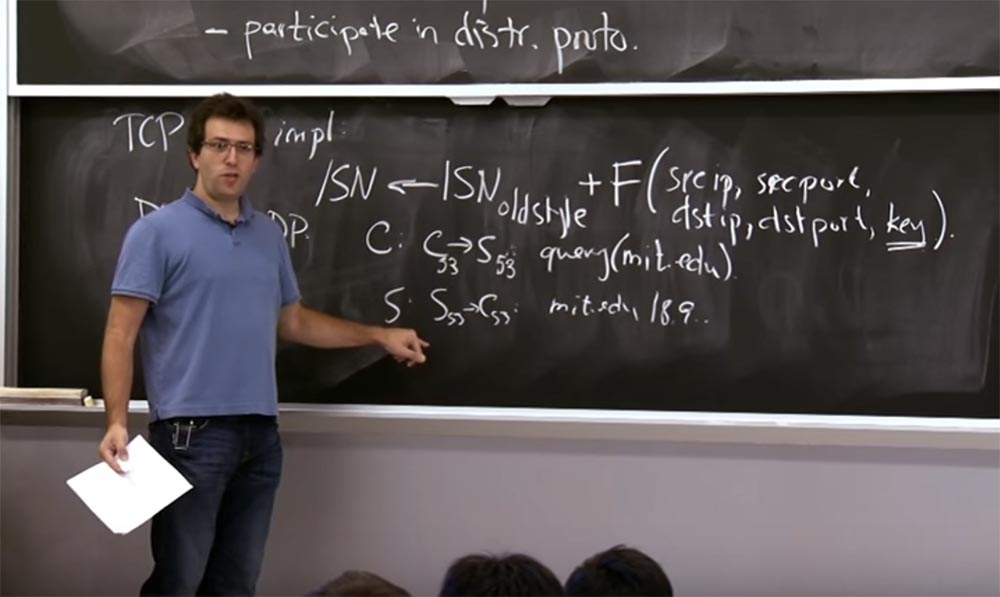 - participate in distr. proto.
TCP impl:
ISN ← ISN oldstyle + F(src ip, src port,
dstip, dstport, key).
DP.
C: C53→S53: query(mit.edu).
S: S53→C53: mit.edu, 18.9..